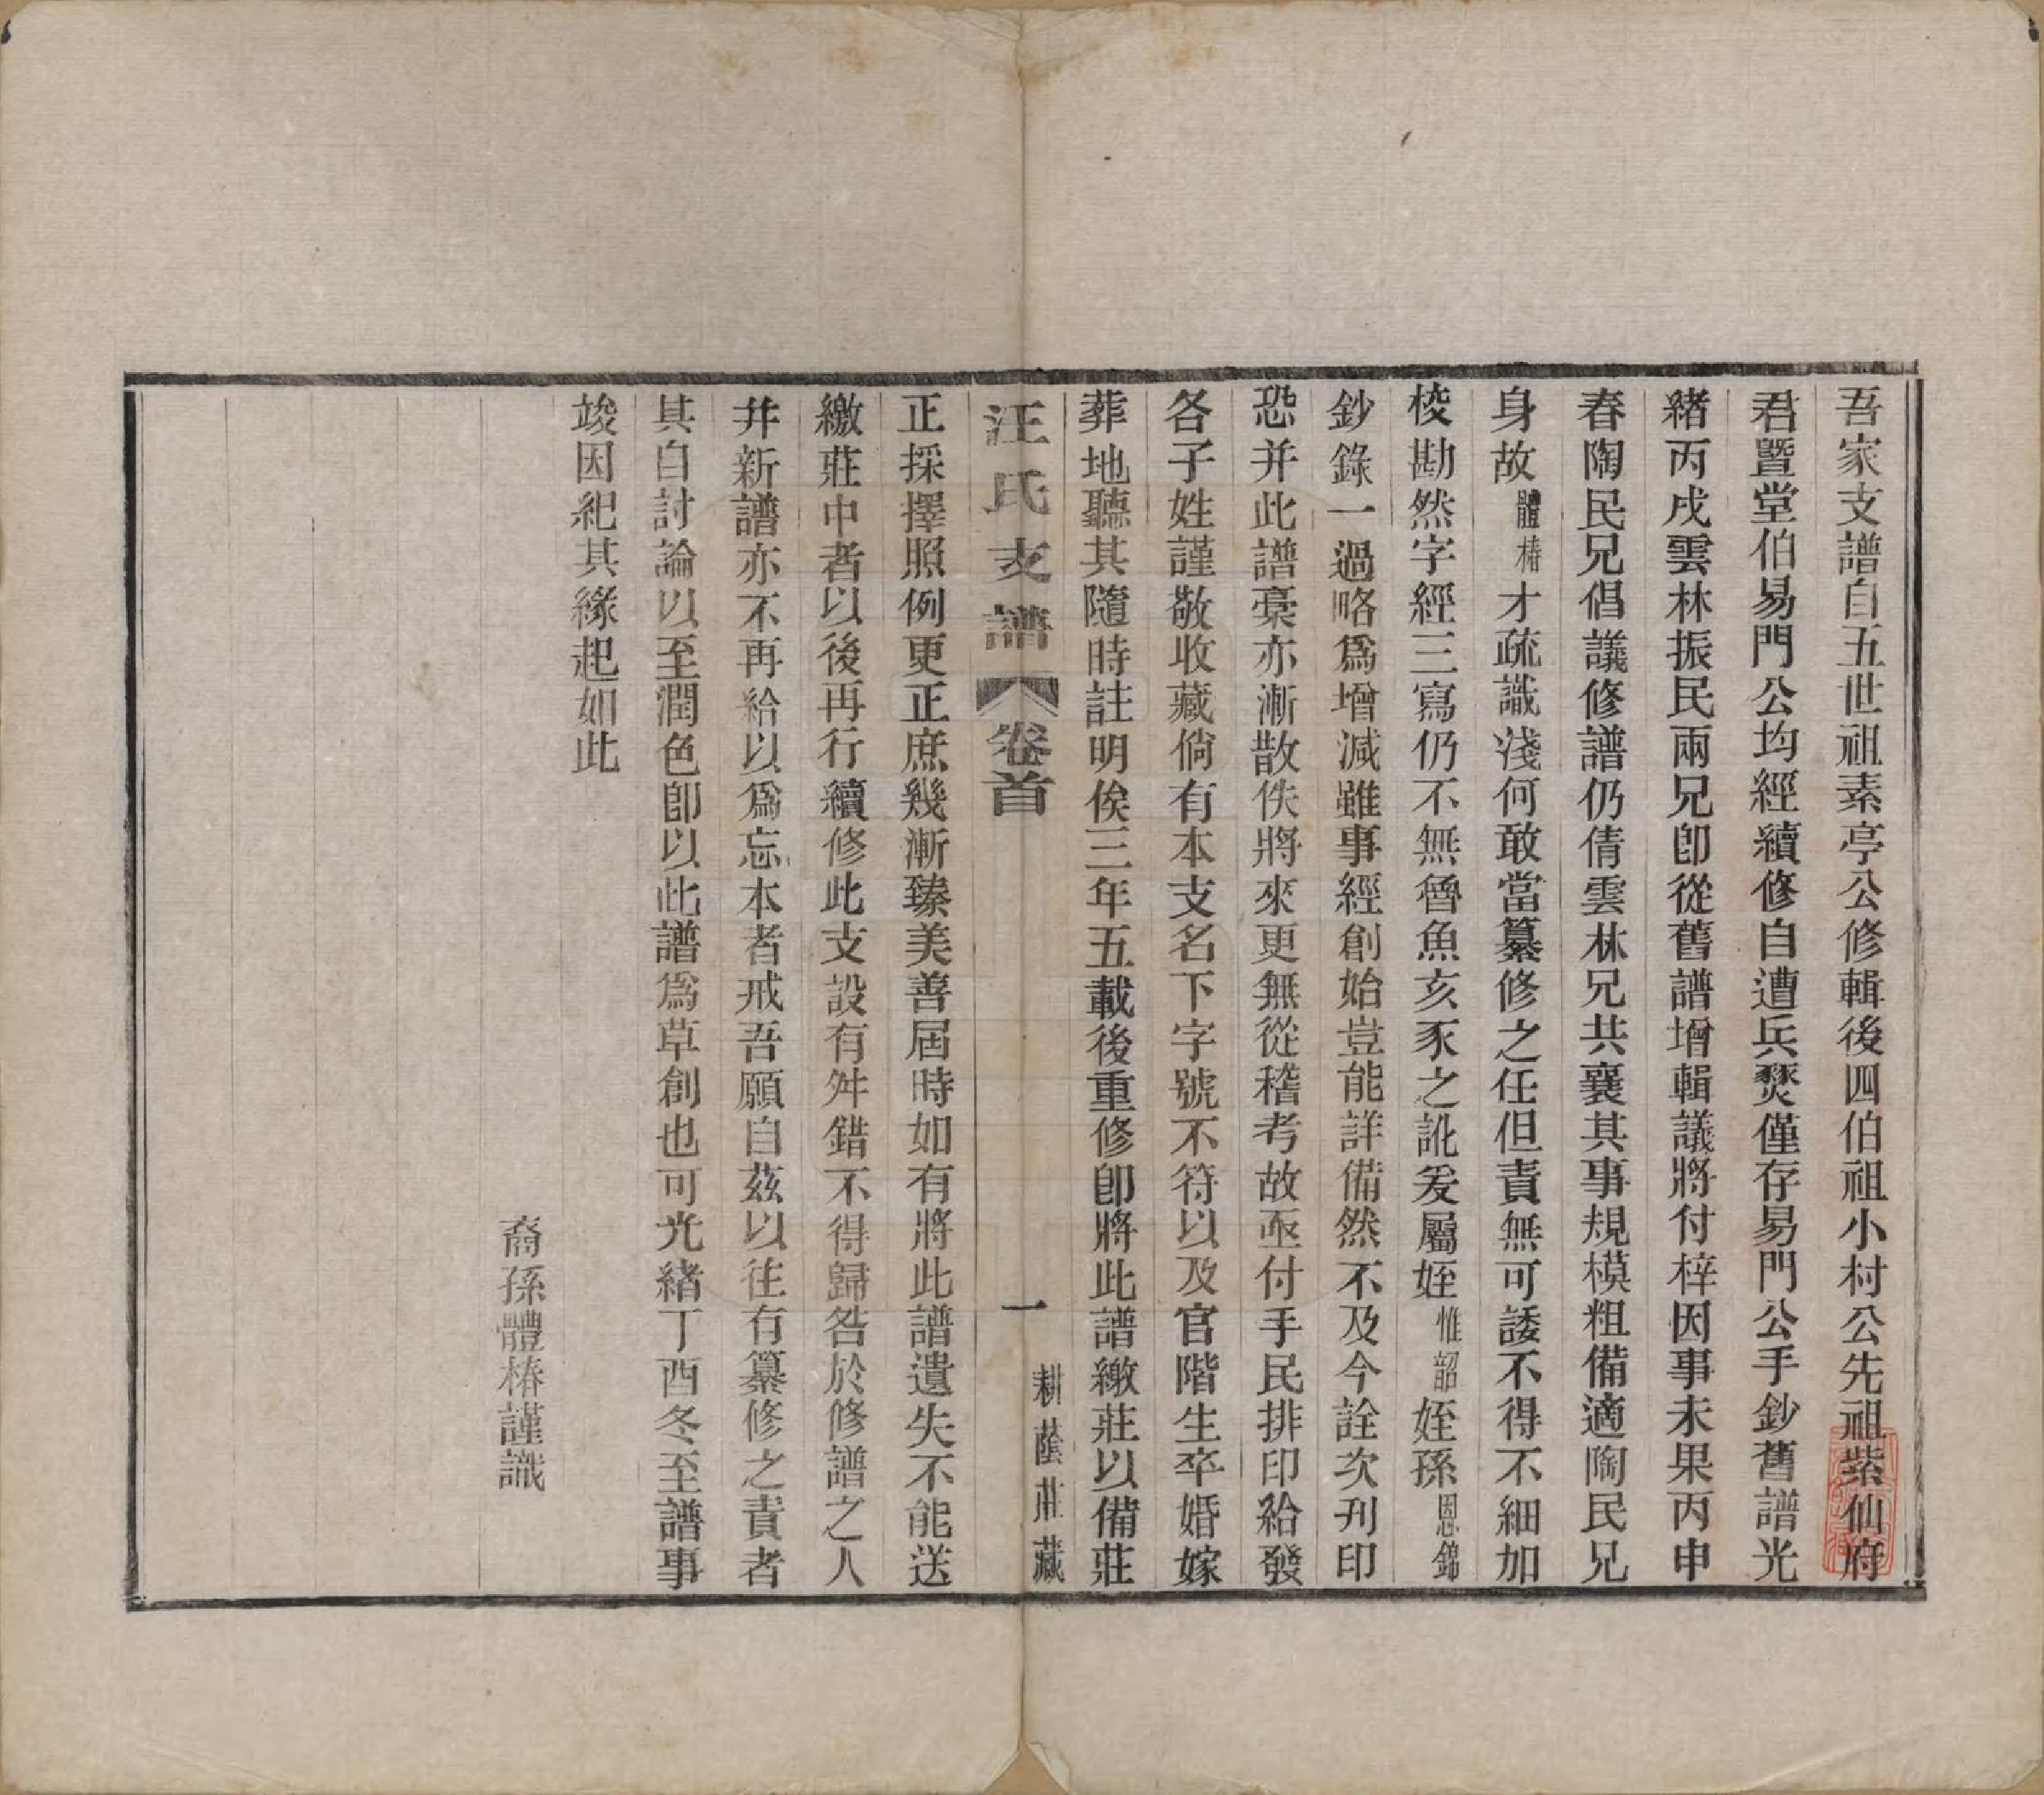 吾家支譜自五世祖素亭公修輯後四伯祖小村公先祖紫仙府
君暨堂伯易門公均經續修自遭兵燹僅存易門公手鈔舊譜光
緒丙戌雲林振民兩兄卽從舊譜增輯議將付梓因事未果丙申
春陶民兄倡議修譜仍倩雲林兄共襄其事規模粗備適陶民兄
身故體椿才疏識淺何敢當纂修之任但責無可諉不得不細加
校勘然字經三寫仍不無魯魚亥豕之訛爰屬姪惟韶姪孫恩錦
鈔錄一過略爲增減雖事經創始豈能詳備然不及今詮次刋印
恐幷此譜稾亦漸散佚將來更無從稽考故亟付手民排印給發
各子姓謹敬收藏倘有本支名下字號不符以及官階生卒婚嫁
葬地聽其隨時註明俟三年五載後重修卽將此譜繳莊以備莊
汪氏支譜 卷首 一 耕蔭莊藏
正採擇照例更正庶幾漸臻美善屆時如有將此譜遺失不能送
繳莊中者以後再行續修此支設有舛錯不得歸咎於修譜之人
幷新譜亦不再給以爲忘本者戒吾願自茲以往有纂修之責者
其自討論以至潤色卽以此譜爲草創也可光緒丁酉冬至譜事
竣因紀其緣起如此
裔孫體椿謹識